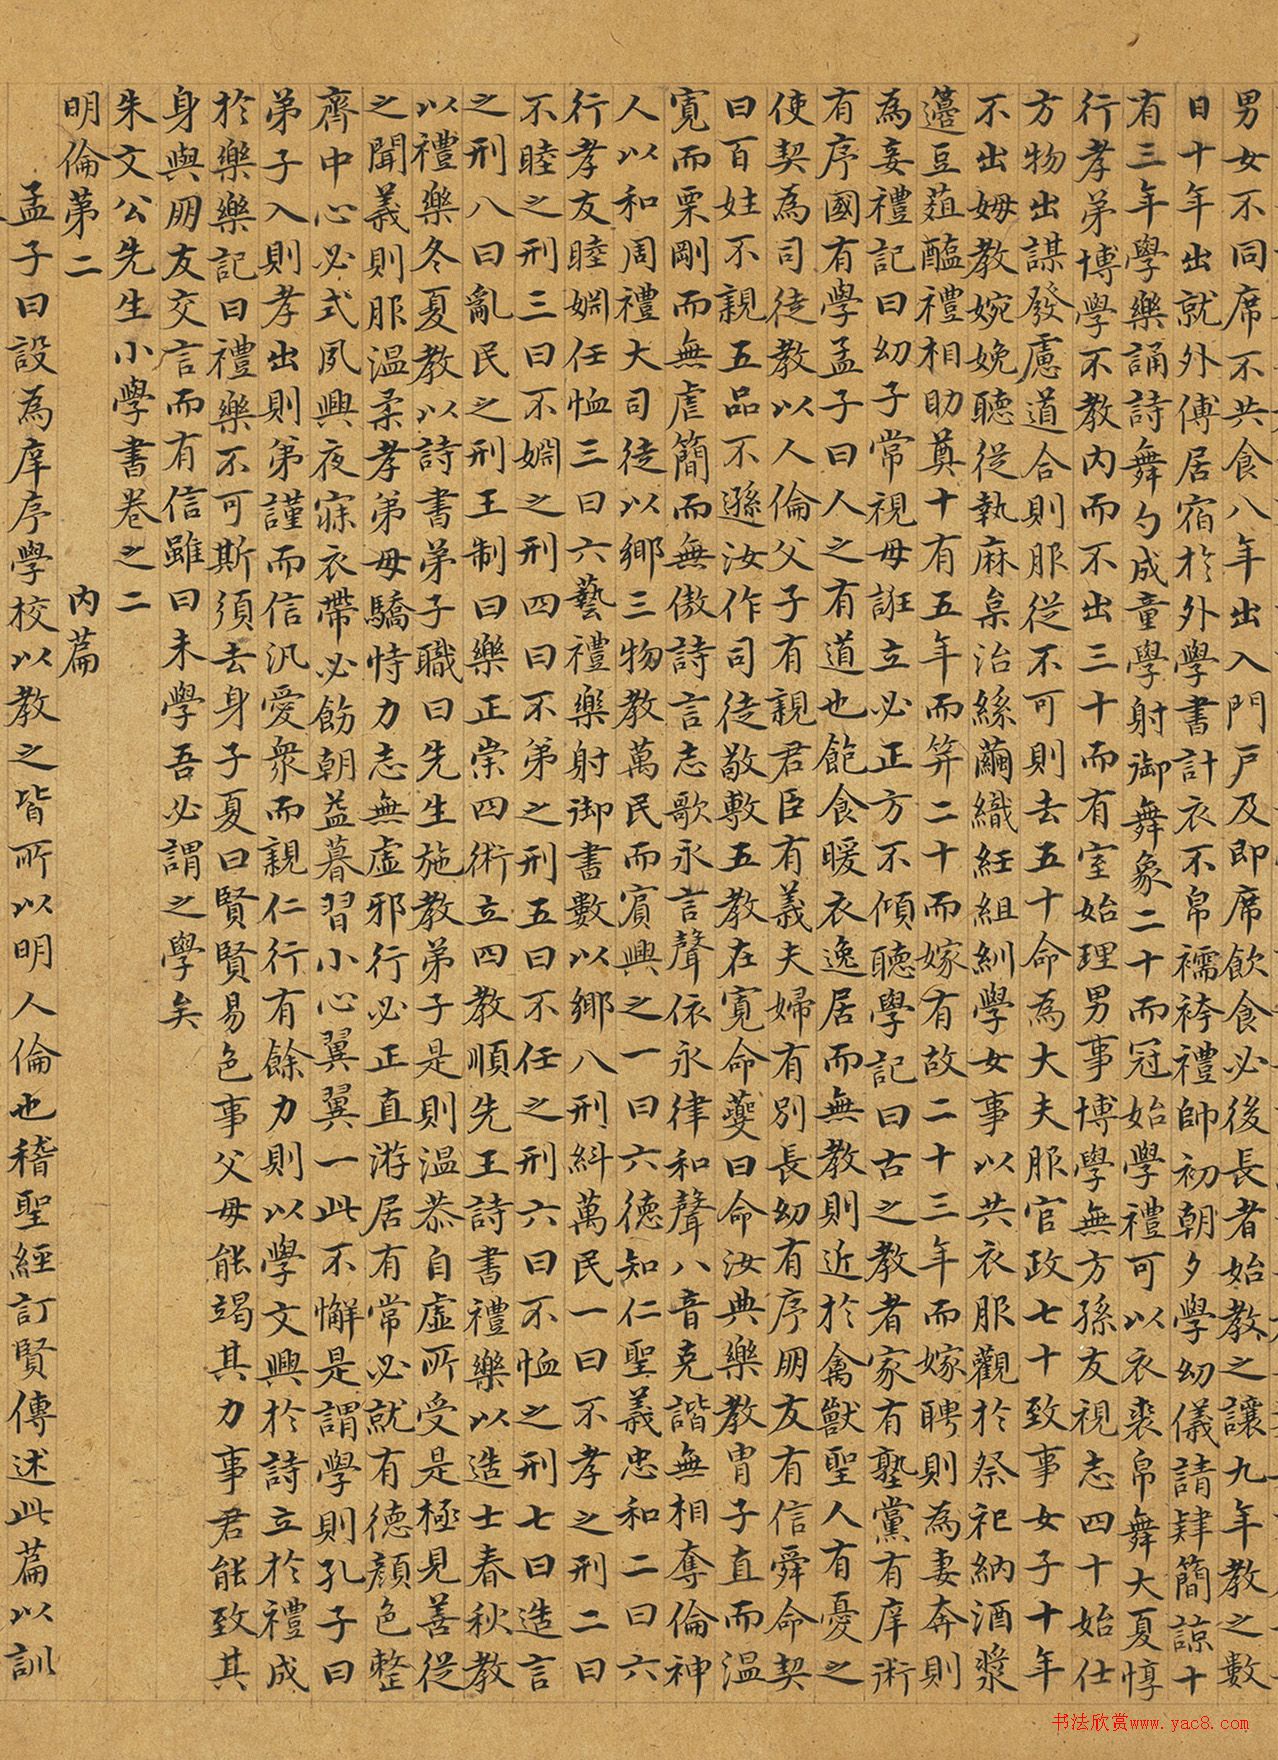 男女不同席不共食八年出入門戶及即席飲食必後長者始教之讓九年教之數
日十年出就外傅居宿於外學書計衣不帛襦袴禮帥初朝夕學幼儀請肄簡諒十
有三年學樂誦詩舞勺成童學射御舞象二十而冠始學禮可以衣裘帛舞大夏惇
行孝弟博學不教內而不出三十而有室始理男事博學無方孫友視志四十始仕
方物出謀發慮道合則服從不可則去五十命為大夫服官政七十致事女子十年
不出姆教婉娩聽從執麻枲治絲繭織紝組紃學女事以共衣服觀於祭祀納酒漿
籩豆菹醢禮相助奠十有五年而笄二十而嫁有故二十三年而嫁聘則為妻奔則
為妾禮記曰幼子常視毋誑立必正方不傾聽學記曰古之教者家有塾黨有庠術
有序國有學孟子曰人之有道也飽食暖衣逸居而無教則近於禽獸聖人有憂之
使契為司徒教以人倫父子有親君臣有義夫婦有別長幼有序朋友有信舜命契
曰百姓不親五品不遜汝作司徒敬敷五教在寬命夔曰命汝典樂教胄子直而温
寬而栗剛而無虐簡而無傲詩言志歌永言聲依永律和聲八音克諧無相奪倫神
人以和周禮大司徒以鄉三物教萬民而賓興之一曰六德知仁聖義忠和二曰六
行孝友睦婣任恤三曰六藝禮樂射御書數以鄉八刑糾萬民一曰不孝之刑二曰
不睦之刑三曰不婣之刑四曰不弟之刑五曰不任之刑六曰不恤之刑七曰造言
之刑八曰亂民之刑王制曰樂正崇四術立四教順先王詩書禮樂以造士春秋教
以禮樂冬夏教以詩書弟子職曰先生施教弟子是則温恭自虛所受是極見善從
之聞義則服温柔孝弟毋驕恃力志無虛邪行必正直游居有常必就有德顏色整
齊中心必式夙興夜寐衣帶必飭朝益暮習小心翼翼一此不懈是謂學則孔子曰
弟子入則孝出則弟謹而信汎愛衆而親仁行有餘力則以學文興於詩立於禮成
於樂樂記曰禮樂不可斯須去身子夏曰賢賢易色事父母能竭其力事君能致其
身與朋友交言而有信雖曰未學吾必謂之學矣
朱文公先生小學書卷之二
明倫第二 內篇
孟子曰設為庠序學校以教之皆所以明人倫也稽聖經訂賢傳述此篇以訓
书法欣赏www.yac8.com